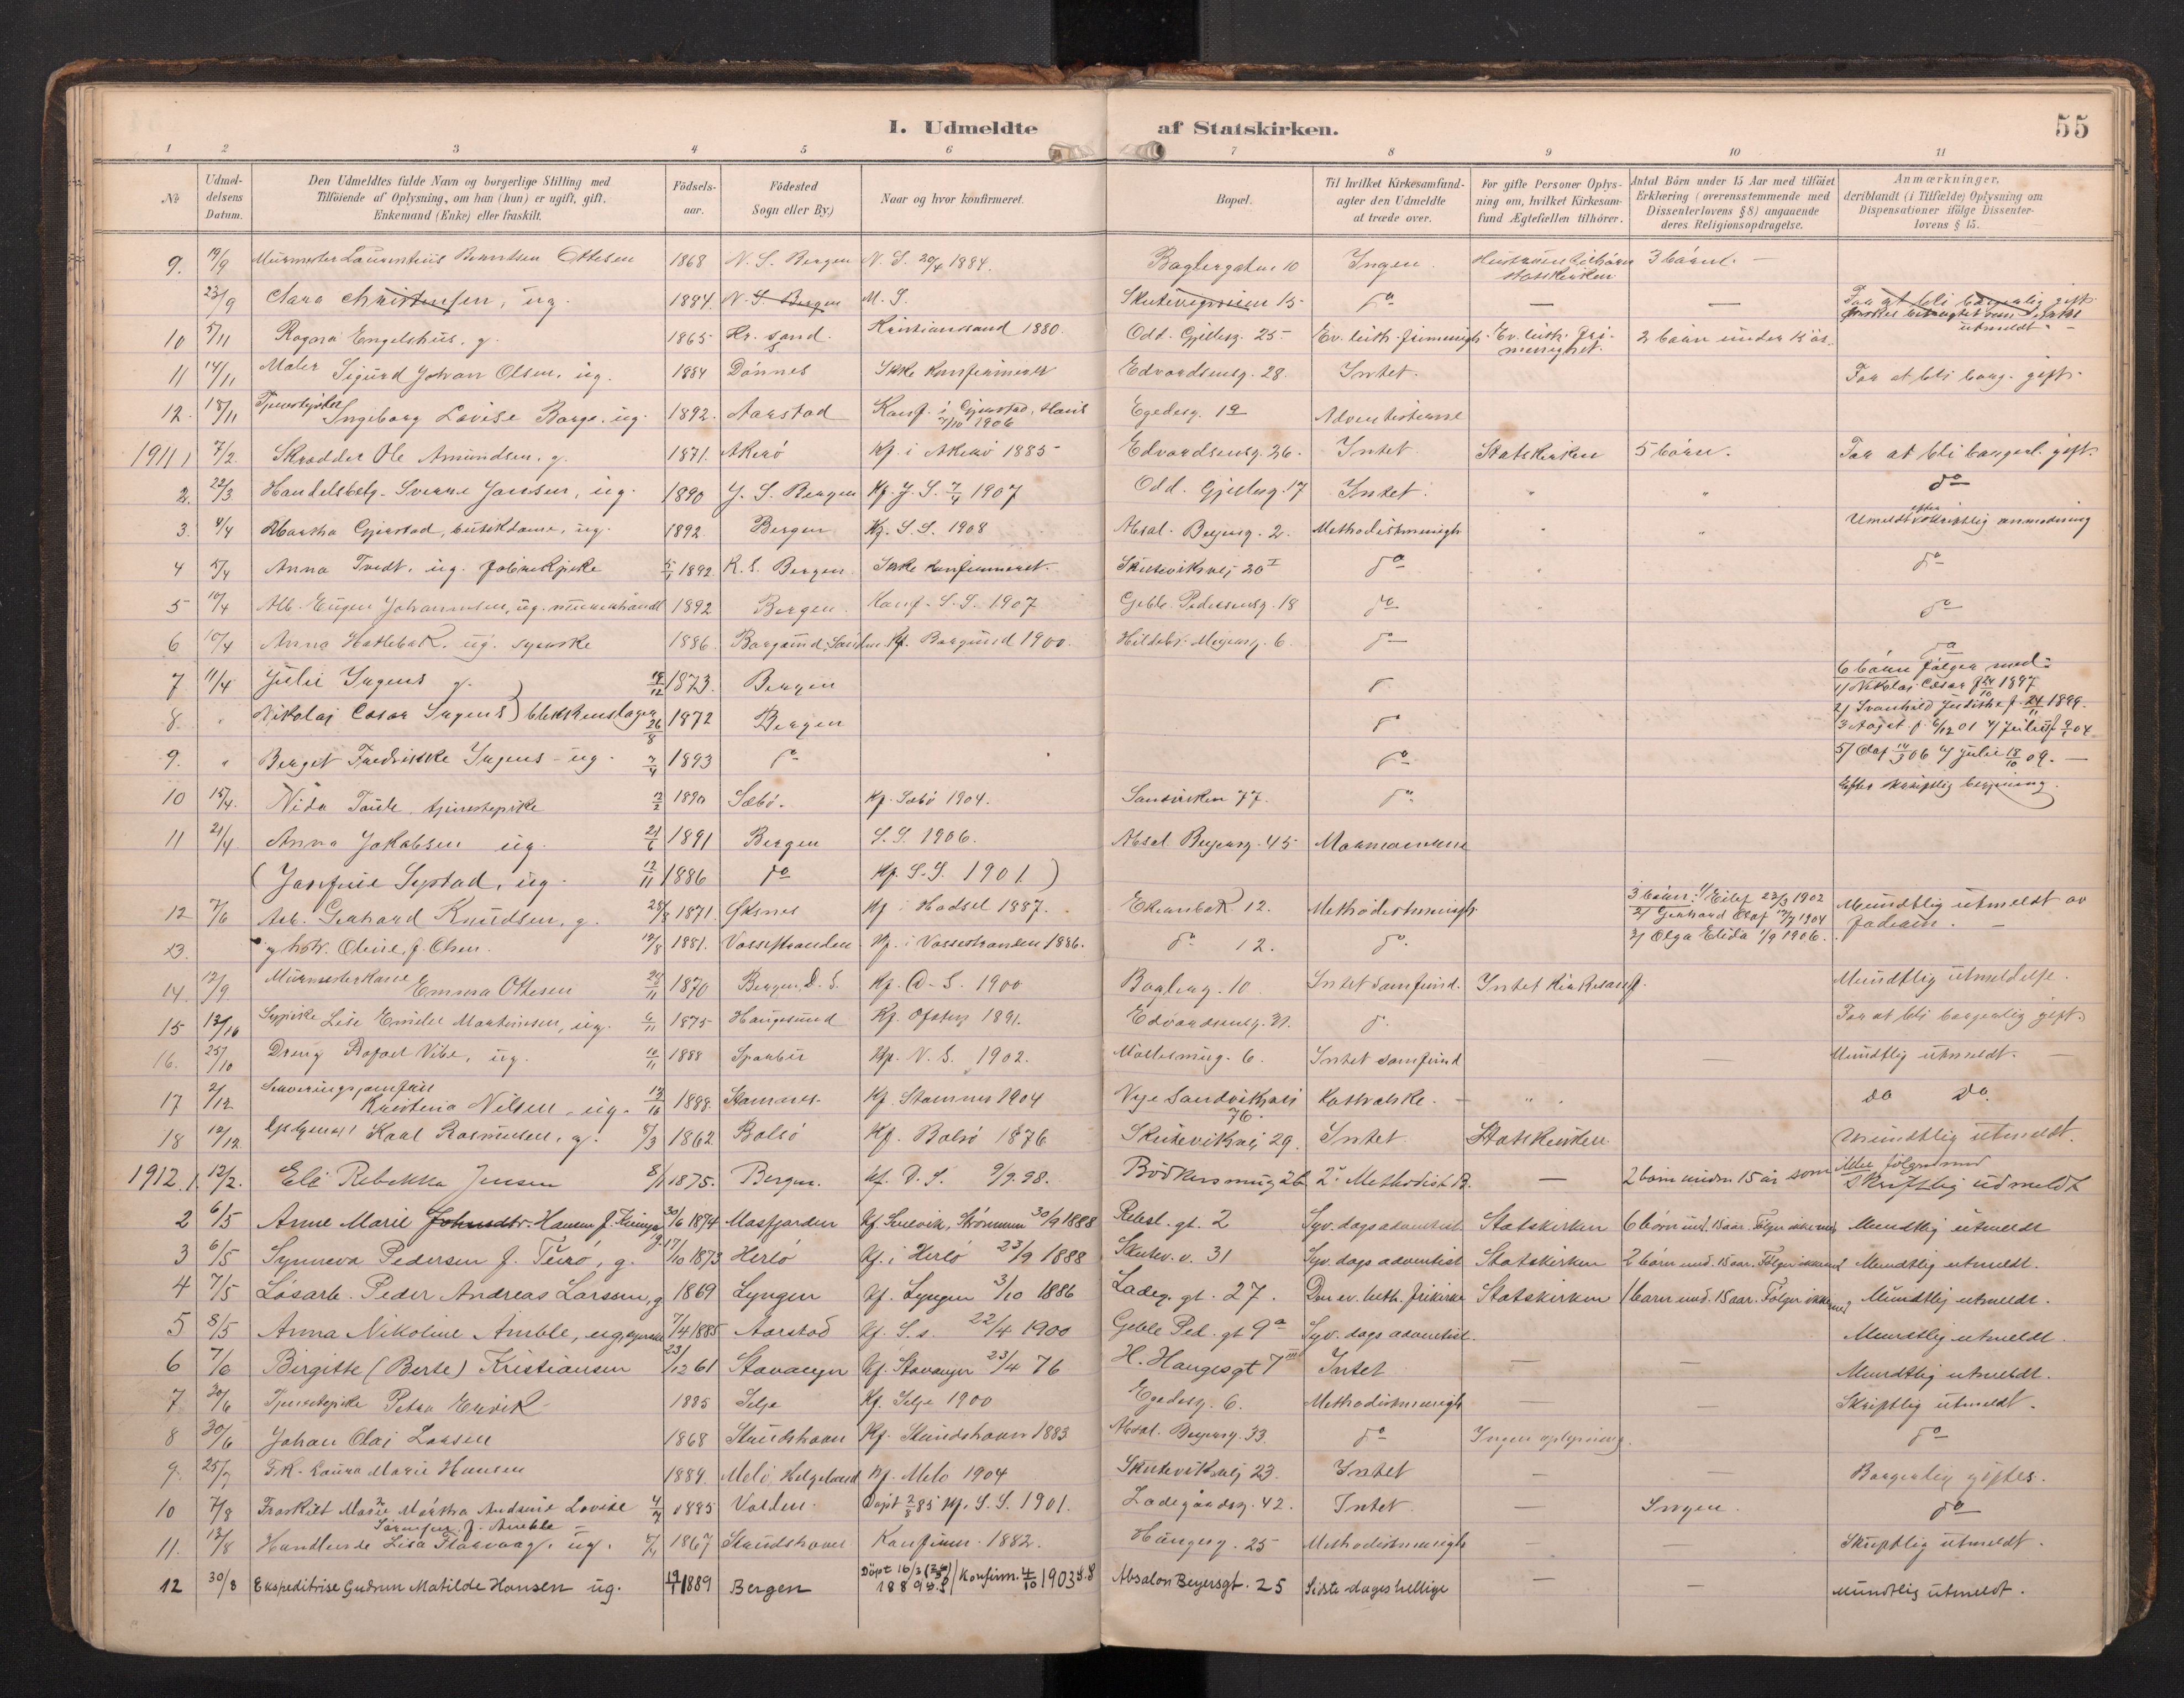 I. Udmeldte af Statskirken.
55
1 2 3 4 5 6 7 8 9 10 11
№ Udmeldelsens Datum. Den Udmeldtes fulde Navn og borgerlige Stilling med Tilføiende af Oplysning, om han (hun) er ugift, gift, Enkemand (Enke) eller fraskilt. Fødselsaar. Fødested Sogn eller By.) Naar og hvor konfirmeret. Bopæl. Til hvilket Kirkesamfund agter den Udmeldte at træde over. For gifte Personer Oplysning om, hvilket Kirkesamfund Ægtefællen tilhører. Antal Börn under 15 Aar med tilföiet Erklæring (overensstemmende med Dissenterlovens § 8) angaaende deres Religionsopdragelse. Anmærkninger, deriblandt (i Tilfælde) Oplysning om Dispensationer ifölge Dissenterlovens § 15.
9. 19/9 Murmester Laurentius Berntsen Ottesen 1868 N. S. Bergen N. S. 20/4 1884. Baglergaten 10 Ingen Statskirken 3 börn. —
23/9 Clara Christensen, ug. 1884 N. S. Bergen M. S. 15 do — — For at bli borgerlig gift utmeldt. —
10 5/11 Ragna Engelshus, g. 1865 Kr. sand. Kristianssand 1880. Odd. Gjelles g. 25 Ev. luth. frimenigh. Ev. luth. frimenighet. 2 börn under 15 år.
11 14/11 Maler Sigurd Johan Olsen, ug. 1884 Dönnes Ikke konfirmeret Edvardsensg. 28. Intet. For at bli borg. gift
12. 18/11 Tjenestepike Ingeborg Lovise Borge. ug. 1892. Aarstad Konf. i 7/10 1906 Egedesg. 1a Adventisterne
1911 1 7/2. Skrædder Ole Amundsen, g. 1871. Akerö Kf. i Akerö 1885 Edvardsensg. 26. Intet Statskirken 5 börn. For at bli borgerl. gift.
2. 22/3 Handelsbetj. Sverre Jansen, ug. 1890 J. S. Bergen Kf. J. S. 7/4 1907 Odd. Gjellesg. 17 Intet. " " do
3. 4/4 Martha Gjerstad, butikdame, ug. 1892 Bergen Kf. S. S. 1908 Absal. Beyersg. 2. Methodistmenigh. " " Utmeldt efter skriftlig anmodning
4 5/4 Anna Tvedt. ug. fabrikpike 5/1 1892 K. S. Bergen Ikke konfirmeret. Skuteviksvej 20 I do " do
5 10/4 Alb. Eugen Johannesen, ug. murerhåndl 1892 Bergen. Konf. S. S. 1907 Geble Pederssensg. 18 do do
6 10/4 Anna Hatlebak. ug. syerske 1886. Borgund, Kf. Borgund 1900. Hildebr. Meyersg. 6. do do
7 11/4 Julie Irgens g. 19/12 1873. Bergen do 6 börn fölger med: 1) Nikolai Cæsar f. 24/10 1897
8. " Nikolai Cæsar Irgens blikkenslager 26/8 1872 Bergen do 2) f. 24/11 1899. 3 f. 6/12 01
9. " Berget Fredrikke Irgens ug. 7/4 1893 do do 5) Olaf 06 Julie 18/10 09. —
10 15/4. Nida Taule, tjenestepike 2/2 1890 Sæbö. Kf. Sæbö 1904. Sandviken 77. do Efter skriftlig begjæring.
11 21/4 Anna Jakobsen ug. 21/6 1891 Bergen S. S. 1906. Absal. Beyersg. 45 Mormonerne
( Josefine Systad, ug. 12/11 1886 do Kf. S. S. 1901 )
12 7/6 Arb. Gerhard Knudsen, g. 28/8 1871. Öksnes Kf. i Hadsel 1887. Ekrenbak. 12. Methodistmenigh. 3 börn: 1) Eilef 23/3 1902 2/ Gerhard Olaf 17/7 1904 3/ Olga Elida 1/9 1906. Mundtlig utmeldt av faderen. —
13. " og hstr. Oline, f. Olsen. 12/8 1881. Vossestranden Kf. i Vossestranden 1886. do 12. do.
14. 12/9 Murmesterkone Emma Ottesen 24/11 1870 Bergen, D. S. Kf. D. S. 1900 Baglerg. 10 Intet samfund. Intet kirkesamf. Mundtlig utmeldelse.
15 13/10 Sypike Lise Emilie Martinsen, ug. 6/11 1875 Haugesund Kf. 1891. Edvardsensg. 31. do. For at bli borgerlig gift.
16. 25/10 Dreng Rafael Vibe, ug. 10/11 1888 Sparbu Kf. N. S. 1902. 6. Intet samfund — Mundtlig utmeldt. —
17 2/12 Kristina Nilsen, ug. 12/10 1888. Stamnes. Kf. Stamnes 1904 Nye Sandviksvei 76. Katholske. — " " do do.
18 12/12. Karl Rasmussen, g. 5/3 1862 Bolsö Kf. Bolsö 1876 Skuteviksvej 29. Intet Statskirken Mundtlig utmeldt.
1912. 1. 12/2. Eli Rebekka Jensen 8/1 1875. Bergen. Kf. D. S. 9/9. 98. Bödkersmug 26 2. Methodist K. — 2 börn under 15 år som ikke fölger med Skriftlig udmeldt
2 6/5 Anne Marie Johnsdtr. Hansen f. 30/6 1874 Masfjorden Kf. 30/9 1888 Rebsl. gt. 2 Syv. dags adventist. Statskirken 6 börn und. 15 aar. Fölger ikke med Mundtlig utmeldt
3 6/5 Synneva Pedersen f. Turö, g. 17/10 1873 Herlö Kf. i Herlö 23/9 1888 Skutev. v. 31 Syv. dags adventist Statskirken 2 börn und. 15 aar. Fölger ikke med Mundtlig utmeldt.
4 7/5 Lösarb. Peder Andreas Larsen, g 1869 Lyngen Kf. Lyngen 3/10 1886 Ladeg. gt. 27. Den ev. luth. frikirke Statskirken 1 barn und. 15 aar. Fölger ikke med Mundtlig utmeldt.
5 8/5 Anna Nikoline Amble, ug, syerske 7/4 1885 Aarstad Kf. S. s. 22/4 1900 Geble Ped. gt 9 a Syv. dags adventist. Mundtlig utmeldt.
6 7/6 Birgitte (Berte) Kristiansen 23/12 61 Stavanger Kf. Stavanger 23/4 76 H. Haugesgt 7 III Intet — — Mundtlig utmeldt.
7 20/6 Tjenestepike Petra Ervik 1885 Selje Kf. Selje 1900 Egedesg. 6. Methodistmenigh — — Skriftlig utmeldt.
8 30/6 Johan Olai Larsen 1868 Kf. 1883 Absal. Beyersg. 33. do Ingen oplysning. — do
9. 25/7 Frk. Laura Marie Hansen 1889. Melö, Helgeland Kf. Melö 1904 Skuteviksvej 23. Intet — — Borgerlig giftes.
10 7/8 Fraskilt Marie Martha Andrine Lovise f. Amble 4/7 1885 Volden. Döpt 2/8 85 Kf. S. S. 1901. Ladegaardsg. 42. Intet — Ingen. do
11. 12/8 Handlende Lisa ug. 1867 Konfirm. 1882. Haugesg. 25 Methodistmenigh — — Skriftlig utmeldt.
12 30/8 Ekspeditrise Gudrun Matilde Hansen ug. 19/1 1889 Bergen Döpt 16/3 1889 S. S. / Konfirm. 4/10 1903 S. S Absalon Beyersgt. 25 Sidste dages hellige — — Mundtlig utmeldt.